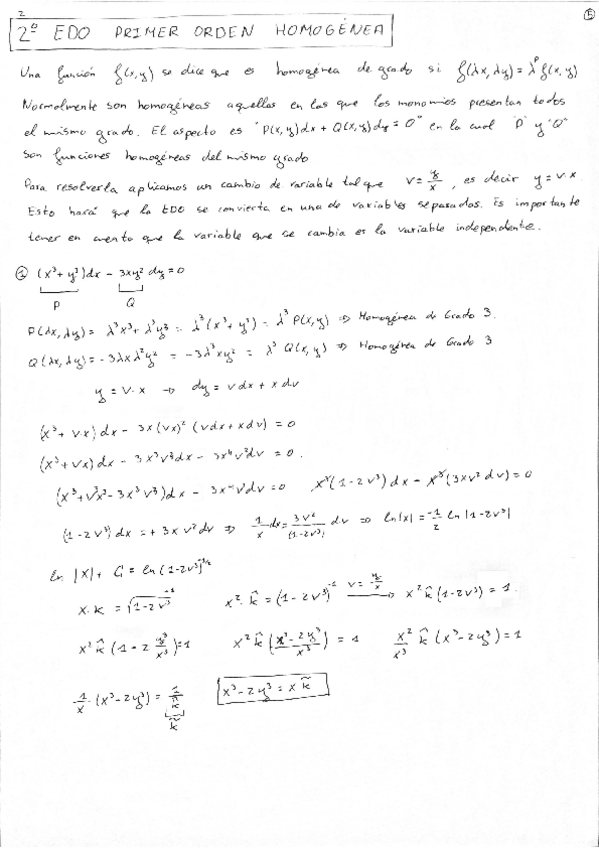 2
5
2º EDO PRIMER ORDEN HOMOGÉNEA
Una función f(x,y) se dice que es homogénea de grado si f(λx, λy) = λᵖ f(x,y)
Normalmente son homogéneas aquellas en las que los monomios presentan todos
el mismo grado. El aspecto es "P(x,y)dx + Q(x,y)dy = 0" en la cual "P" y "Q"
son funciones homogéneas del mismo grado
Para resolverla aplicamos un cambio de variable tal que v = y/x, es decir y = v·x
Esto hará que la EDO se convierta en una de variables separadas. Es importante
tener en cuenta que la variable que se cambia es la variable independiente.
① (x³ + y³)dx - 3xy² dy = 0
P Q
P(λx, λy) = λ³x³ + λ³y³ = λ³(x³ + y³) = λ³ P(x,y) ⇒ Homogénea de Grado 3.
Q(λx, λy) = -3λxλ²y² = -3λ³xy² = λ³ Q(x,y) ⇒ Homogénea de Grado 3
y = v·x → dy = v dx + x dv
(x³ + v·x) dx - 3x(vx)² (vdx + xdv) = 0
(x³ + vx) dx - 3x³v³dx - 3x⁴v²dv = 0.
(x³ + v³x³ - 3x³v³)dx - 3x⁴v²dv = 0 x³(1-2v³) dx - x³(3xv² dv) = 0
(1-2v³) dx = + 3xv²dv ⇒ 1/x dx = 3v²/(1-2v³) dv ⇒ ln|x| = -1/2 ln|1-2v³|
ln |x| + C = ln(1-2v³)^(-1/2)
x·k = √(1-2v³)⁻¹ x² · k̂ = (1-2v³)⁻¹ v = y/x → x² k̂ (1-2v³) = 1.
x² k̂ (1 - 2 y³/x³) = 1 x² k̂ (x³-2y³/x³) = 1 x²/x³ k̂ (x³ - 2y³) = 1
1/x · (x³ - 2y³) = 1/k̂ x³ - 2y³ = x k̃
k̃